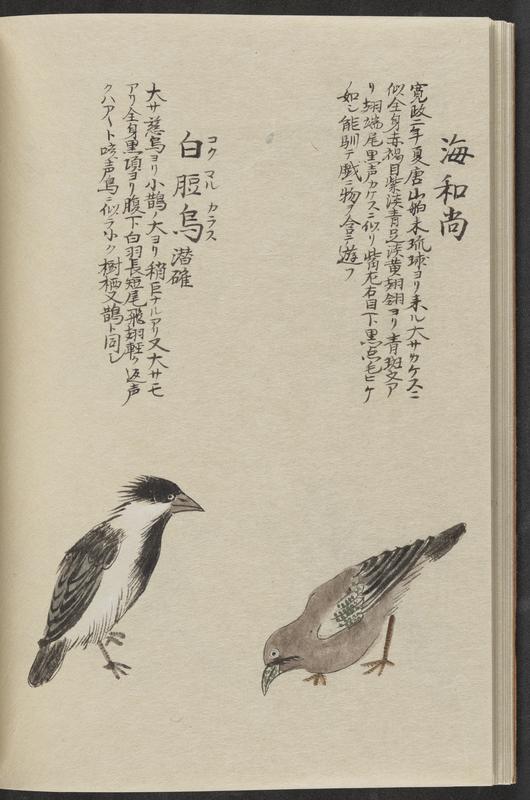 海和尚
寛政二年夏唐山舶来琉球ヨリ来ル大サカケスニ
似全身赤褐目紫淡青足淡黄翅翎ヨリ青斑文ア
リ翅端尾黒声カケスニ似リ觜左右目下黒点毛ヒケ
如シ能馴テ戯ニ物ヲ含テ遊フ
コクマルカラス
白脰烏 潜確
大サ慈烏ヨリ小鵲ノ大ヨリ稍巨ナルアリ又大サモ
アリ全身黒項ヨリ腹下白羽長短尾飛翅軽ク返声
クハアイト咳声烏ニ似テ小ク樹栖又鵲ト同シ